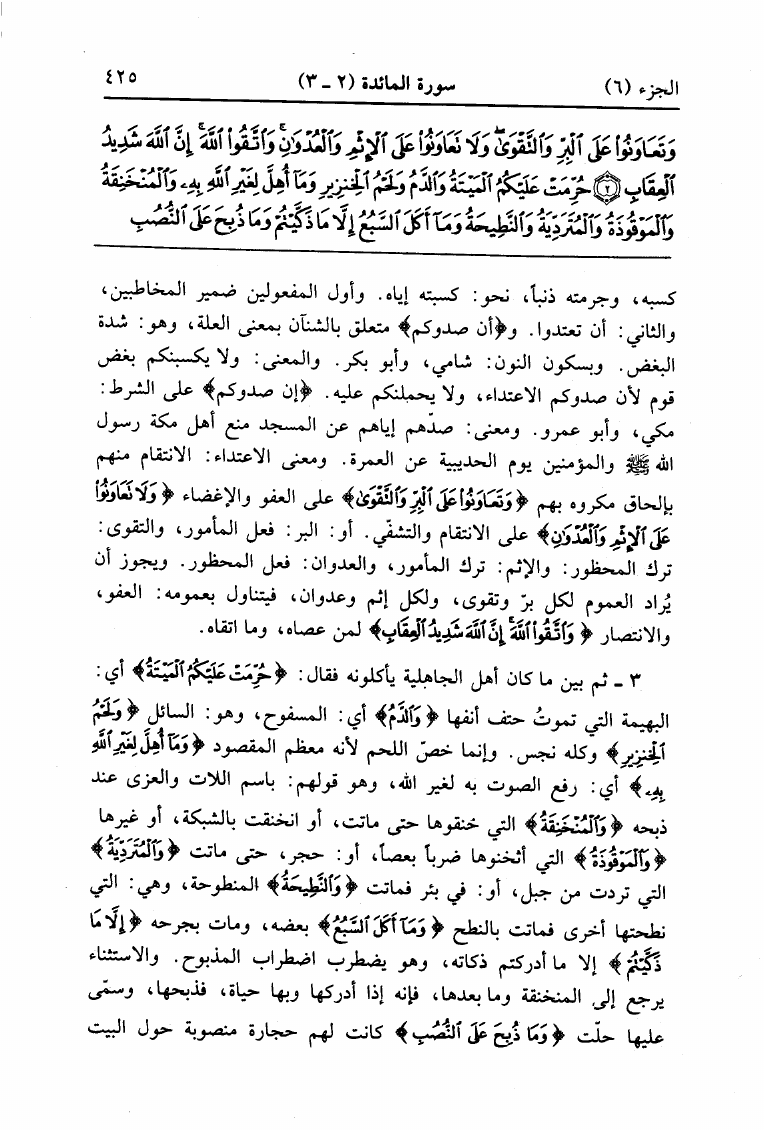 الجزء (٦) سورة المائدة (٢ ـ ٣) ٤٢٥
وَتَعَاوَنُوا۟ عَلَى ٱلْبِرِّ وَٱلتَّقْوَىٰ وَلَا تَعَاوَنُوا۟ عَلَى ٱلْإِثْمِ وَٱلْعُدْوَٰنِ وَٱتَّقُوا۟ ٱللَّهَ إِنَّ ٱللَّهَ شَدِيدُ
ٱلْعِقَابِ ﴿٢﴾ حُرِّمَتْ عَلَيْكُمُ ٱلْمَيْتَةُ وَٱلدَّمُ وَلَحْمُ ٱلْخِنزِيرِ وَمَآ أُهِلَّ لِغَيْرِ ٱللَّهِ بِهِۦ وَٱلْمُنْخَنِقَةُ
وَٱلْمَوْقُوذَةُ وَٱلْمُتَرَدِّيَةُ وَٱلنَّطِيحَةُ وَمَآ أَكَلَ ٱلسَّبُعُ إِلَّا مَا ذَكَّيْتُمْ وَمَا ذُبِحَ عَلَى ٱلنُّصُبِ
كسبه، وجرمته ذنباً، نحو: كسبته إياه. وأول المفعولين ضمير المخاطبين،
والثاني: أن تعتدوا. و﴿أن صدوكم﴾ متعلق بالشنآن بمعنى العلة، وهو: شدة
البغض. وبسكون النون: شامي، وأبو بكر. والمعنى: ولا يكسبنكم بغض
قوم لأن صدوكم الاعتداء، ولا يحملنكم عليه. ﴿إن صدوكم﴾ على الشرط:
مكي، وأبو عمرو. ومعنى: صدّهم إياهم عن المسجد منع أهل مكة رسول
الله ﷺ والمؤمنين يوم الحديبية عن العمرة. ومعنى الاعتداء: الانتقام منهم
بإلحاق مكروه بهم ﴿وَتَعَاوَنُوا۟ عَلَى ٱلْبِرِّ وَٱلتَّقْوَىٰ﴾ على العفو والإغضاء ﴿وَلَا تَعَاوَنُوا۟
عَلَى ٱلْإِثْمِ وَٱلْعُدْوَٰنِ﴾ على الانتقام والتشفّي. أو: البر: فعل المأمور، والتقوى:
ترك المحظور: والإثم: ترك المأمور، والعدوان: فعل المحظور. ويجوز أن
يُراد العموم لكل برّ وتقوى، ولكل إثم وعدوان، فيتناول بعمومه: العفو،
والانتصار ﴿وَٱتَّقُوا۟ ٱللَّهَ إِنَّ ٱللَّهَ شَدِيدُ ٱلْعِقَابِ﴾ لمن عصاه، وما اتقاه.
٣ ـ ثم بين ما كان أهل الجاهلية يأكلونه فقال: ﴿حُرِّمَتْ عَلَيْكُمُ ٱلْمَيْتَةُ﴾ أي:
البهيمة التي تموتُ حتف أنفها ﴿وَٱلدَّمُ﴾ أي: المسفوح، وهو: السائل ﴿وَلَحْمُ
ٱلْخِنزِيرِ﴾ وكله نجس. وإنما خصّ اللحم لأنه معظم المقصود ﴿وَمَآ أُهِلَّ لِغَيْرِ ٱللَّهِ
بِهِۦ﴾ أي: رفع الصوت به لغير الله، وهو قولهم: باسم اللات والعزى عند
ذبحه ﴿وَٱلْمُنْخَنِقَةُ﴾ التي خنقوها حتى ماتت، أو انخنقت بالشبكة، أو غيرها
﴿وَٱلْمَوْقُوذَةُ﴾ التي أثخنوها ضرباً بعصاً، أو: حجر، حتى ماتت ﴿وَٱلْمُتَرَدِّيَةُ﴾
التي تردت من جبل، أو: في بئر فماتت ﴿وَٱلنَّطِيحَةُ﴾ المنطوحة، وهي: التي
نطحتها أخرى فماتت بالنطح ﴿وَمَآ أَكَلَ ٱلسَّبُعُ﴾ بعضه، ومات بجرحه ﴿إِلَّا مَا
ذَكَّيْتُمْ﴾ إلا ما أدركتم ذكاته، وهو يضطرب اضطراب المذبوح. والاستثناء
يرجع إلى المنخنقة وما بعدها، فإنه إذا أدركها وبها حياة، فذبحها، وسمّى
عليها حلّت ﴿وَمَا ذُبِحَ عَلَى ٱلنُّصُبِ﴾ كانت لهم حجارة منصوبة حول البيت